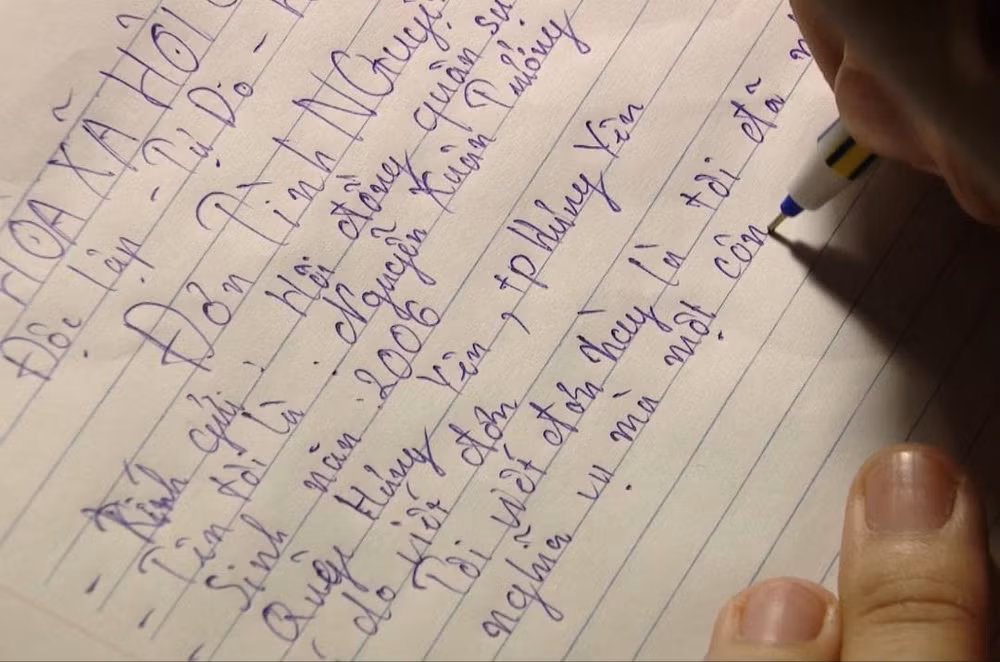 HÒA XÃ HỘI
Độc lập - Tự Do -
Đơn Tình Nguyện
- Kính gửi : Hội đồng quân sự
- Tên tôi là : Nguyễn Xuân Trường
Sinh năn 2006
Quê Hưng Yên , tp Hưng Yên
do viết đơn
Tôi viết đơn này là tôi đã
nghĩa vụ mà một côn